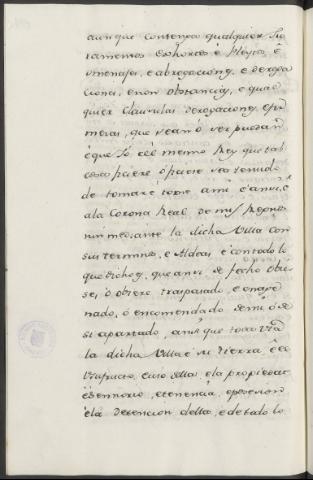 aunque contenga qualquier Ju
ramentos Exhortos è Pleytos, è
omenajes, e abrogaciones, e deroga
ciones, e non obstancias, e quales
quier clausulas derogaciones, e pri
meras, que sean ò ser puedan
è que Yo è el mesmo Rey que tal
cosa ficiere ò ficiere sea tenudo
de tomar è tome a mi è a mi, è
a la Corona Real de mis Regnos
inmediante la dicha Villa con
sus terminos, e Aldeas, è con todo lo
que dicho es, que ansi de fecho obie
se, ò obiere traspasado, e enage
nado, ò encomendado de mi, ò de
si apartado, ansi que toda via
la dicha Villa è su tierra è el
usufructo, e uso della, e la propiedad
è Sennorio, e tenencia, e posesion
è la detencion della, e de todo lo